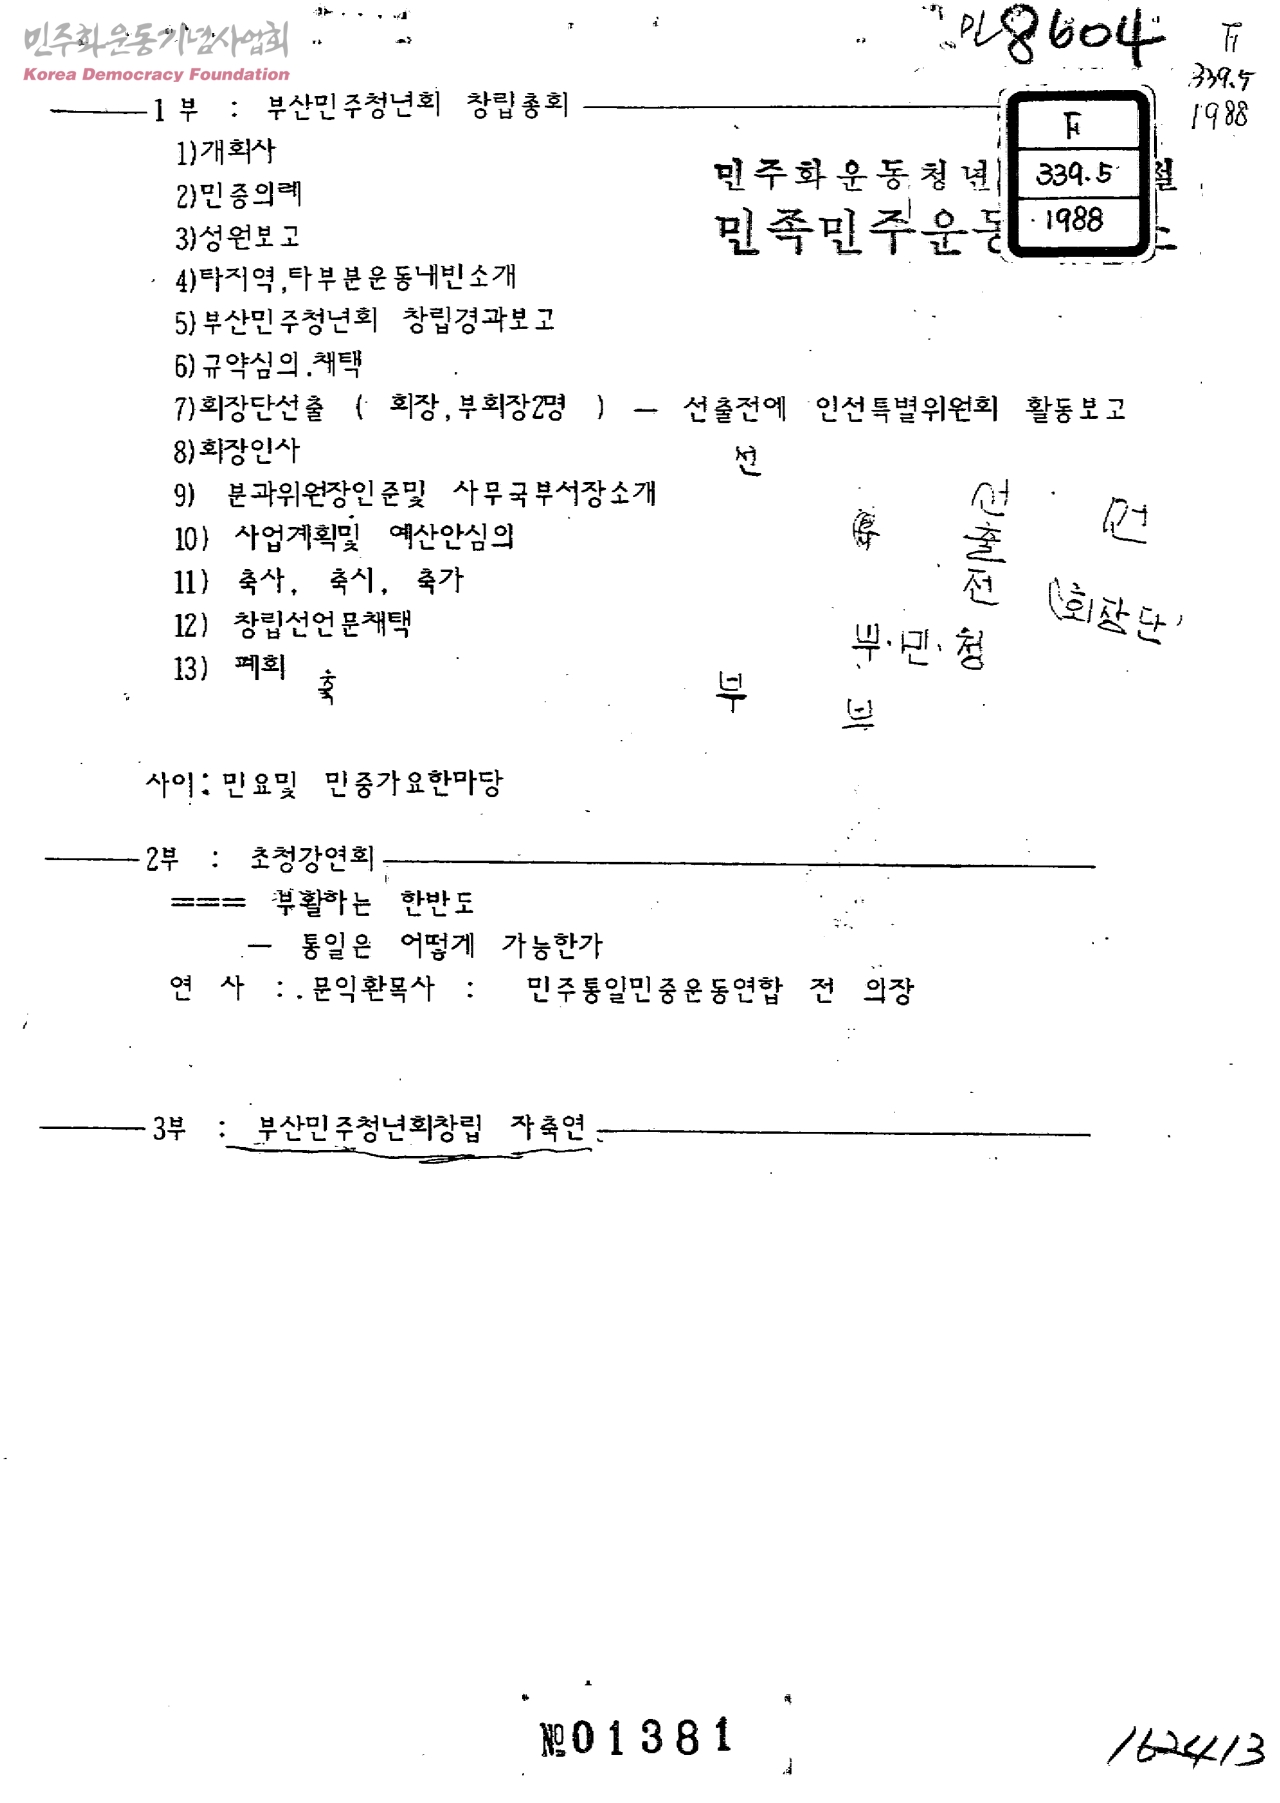 민주화운동기념사업회
Korea Democracy Foundation
민8604
F
339.5
1988
1 부 : 부산민주청년회 창립총회
F
339.5
1988
1)개회사
민주화운동청년
2)민중의례
민족민주운동
3)성원보고
4)타지역,타부분운동내빈소개
5)부산민주청년회 창립경과보고
6)규약심의.채택
7)회장단선출 ( 회장,부회장2명 ) — 선출전에 인선특별위원회 활동보고
8)회장인사
선
9) 분과위원장인준및 사무국부서장소개
선출전
10) 사업계획및 예산안심의
11) 축사, 축시, 축가
(회장단)
12) 창립선언문채택
부.민.청
13) 폐회
부
사이: 민요및 민중가요한마당
2부 : 초청강연회
=== 부활하는 한반도
— 통일은 어떻게 가능한가
연 사 : . 문익환목사 : 민주통일민중운동연합 전 의장
3부 : 부산민주청년회창립 자축연
№01381
162413